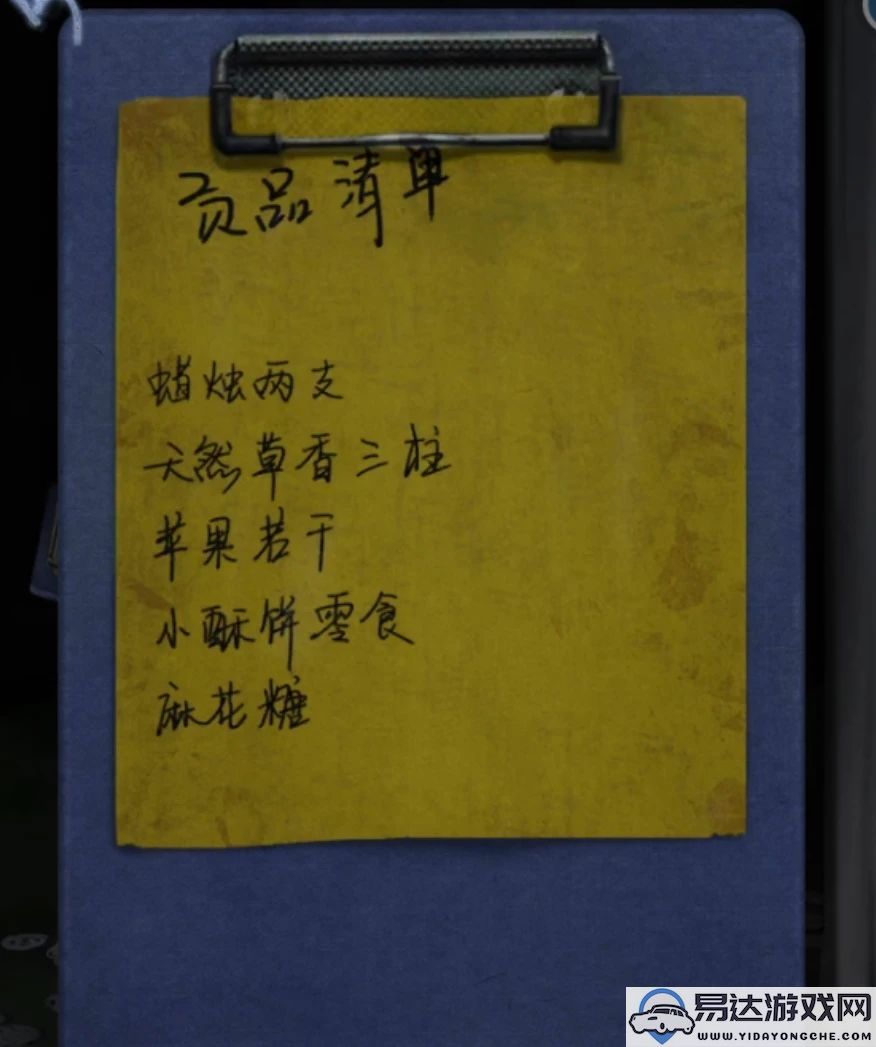 贡品清单
蜡烛两支
天然草香三柱
苹果若干
小酥饼零食
麻花糖
易达游戏网
WWW.YIDAYONGCHE.COM